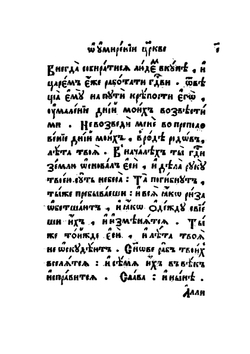 ѿ ᲂумиренїи црⷦ҇кве
Внегда собиратисѧ людѐⷨ вкꙋпѣ, и
царемъ є҆́же работати гдⷭ҇ви. Ѿвѣ
ща̀ є҆мꙋ̀ на пꙋтѝ крѣпости є҆гѡ̀,
ᲂумале́нїе дні́й мои́хъ возвѣсти́
ми. Невозведѝ менѐ во преполо
ве́нїе дні́й мои́хъ, в ро́дѣ родѡ́въ,
лѣ́та твоѧ̀. В нача́лѣхъ ты̀ гдⷭ҇и
зе́млю ѡ҆снова́лъ є҆сѝ, и дѣла̀ рꙋкꙋ̀
твоє́ю сꙋ́ть небеса̀: Та̀ поги́бнꙋтъ
ты́же пребыва́еши: и всѧ̀ ꙗ҆́кѡ ри́за
ѡ҆бетша́ютъ, и ꙗ҆́кѡ ѻ҆де́ждꙋ свїе́
ши и҆̀хъ, и и҆змѣнѧ́тсѧ. Ты́
же то́йжде є҆сѝ, и лѣ́та твоѧ̀
не ѡ҆скꙋдѣ́ютъ. Сн҃ове ра́бъ твои́хъ
вселѧ́тсѧ: и сѣ́мѧ и҆́хъ в вѣ́къ
и҆спра́витсѧ. Сла́ва: и҆ ны́нѣ.
А҆лли